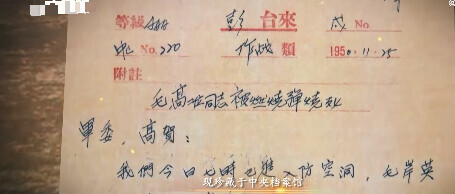 等級 彭 台來 戌 No.
No. 220 作战 類 1950.11.25
附註
毛 同志被燃燒弹燒死
軍委,高賀:
我們今日七時已進入防空洞,毛岸英
现珍藏于中央档案馆